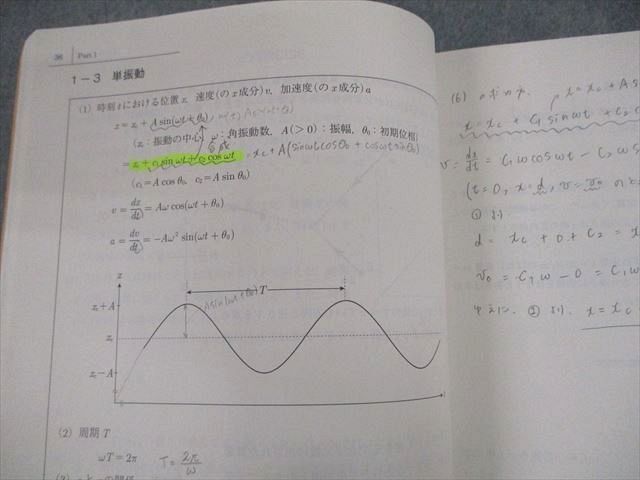 36 Part 1
1-3 単振動
(1) 時刻 t における位置 x, 速度(の x 成分) v, 加速度(の x 成分) a
x = x_c + A sin(ωt + θ₀)
(x_c : 振動の中心, ω : 角振動数, A(>0) : 振幅, θ₀ : 初期位相)
= x_c + c₁ sin ωt + c₂ cos ωt = x_c + A(sinωt cosθ₀ + cosωt sinθ₀)
(c₁ = A cos θ₀, c₂ = A sin θ₀)
v = dx/dt = Aω cos(ωt + θ₀)
a = dv/dt = -Aω² sin(ωt + θ₀)
x
T
A sin(ωt + θ₀)
x_c+A
x_c
x_c-A
(2) 周期 T
ωT = 2π T = 2π/ω
(6)
x = x_c + A s
x = x_c + C₁ sin ωt + C₂ c
v = dx/dt = C₁ω cosωt - C₂ω s
(t = 0, x = d, v = v₀ の
① より
d = x_c + 0 + C₂ = x
v₀ = C₁ω - 0 = C₁ω
② より, x = x_c